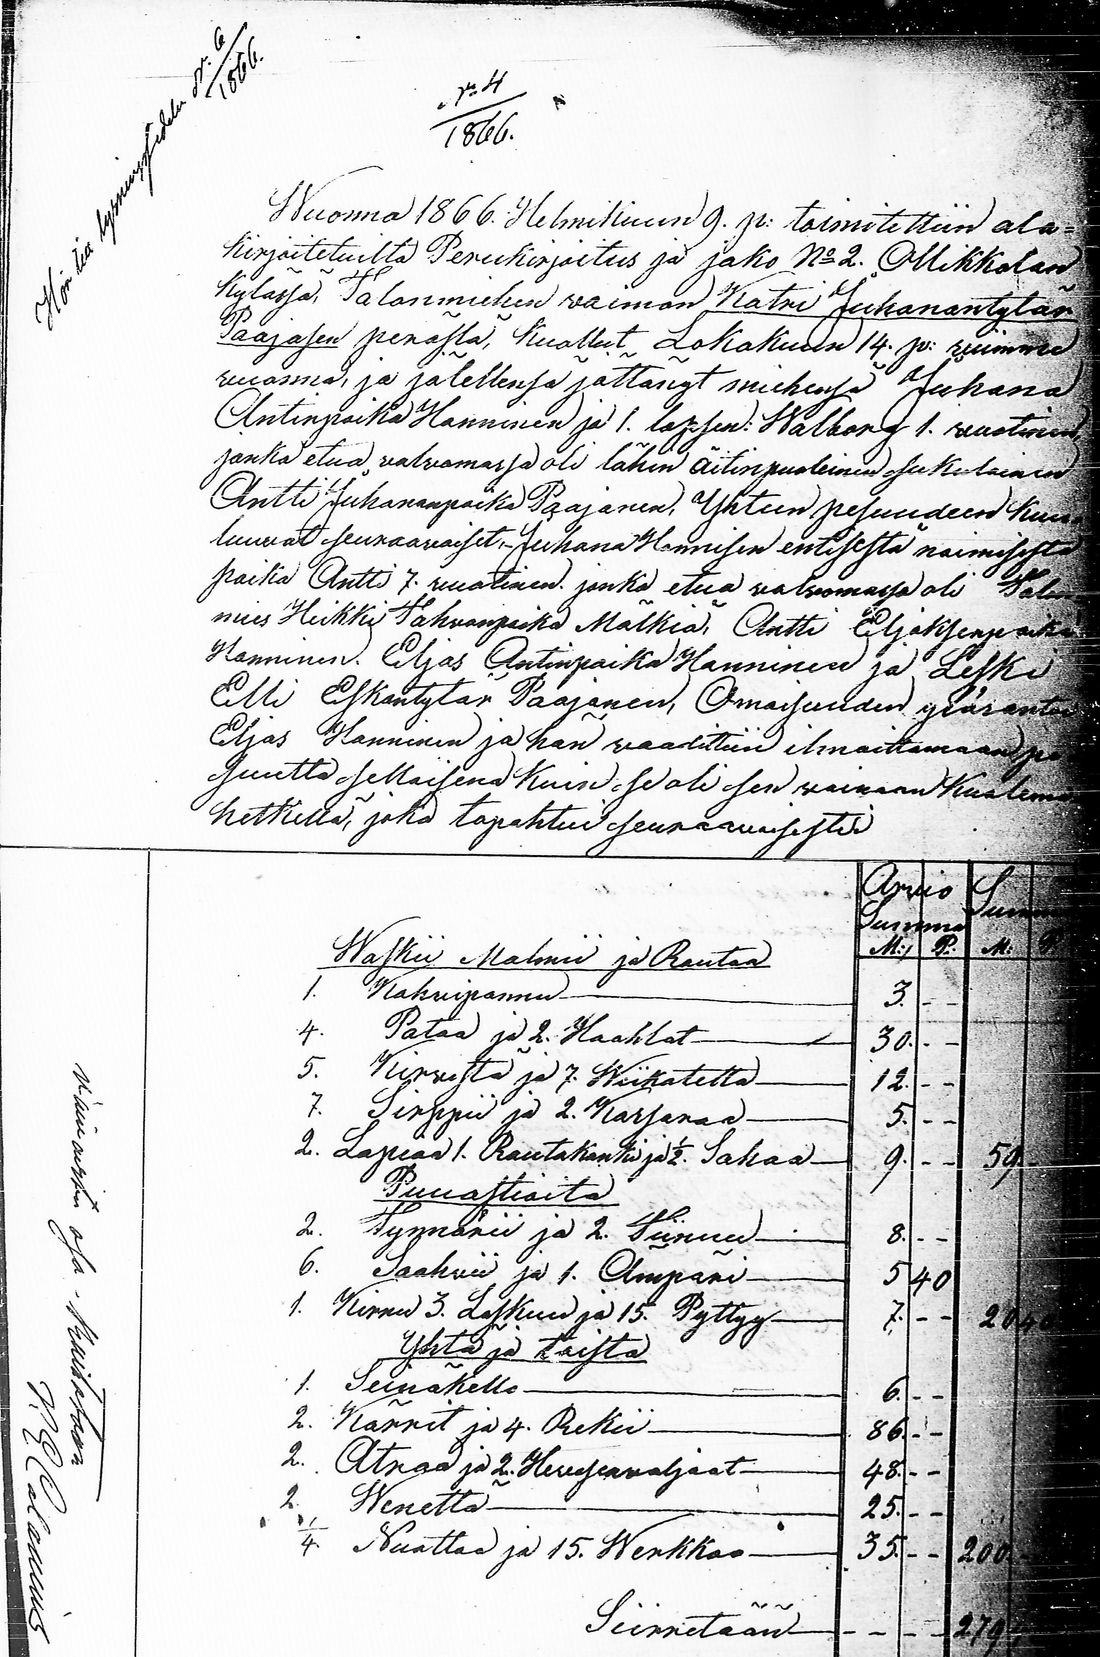 Nr. 6
1866.
No 4
1866.
Wuonna 1866. Helmikuun 9. p: toimitettiin ala=
kirjoitetuilta Perukirjoitus ja jako No 2. Ollikkalan
kylässä, Talonmiehen vaimon Katri Juhanantytär
Paajasen perästä, kuollut Lokakuun 14. p: viimme
vuonna, ja jälellensä jättänyt miehensä Juhana
Antinpoika Hänninen ja 1. lapsen: Walborg 1. vuotinen,
jonka etua valvomassa oli lähin äitinpuoleinen sukulainen
Antti Juhananpoika Paajanen, Yhteen pesuudeen kuu-
luuvat seuraavaiset, Juhana Hännisen entisestä naimisesta
poika Antti 7. vuotinen. jonka etua valvomassa oli Talon
mies Heikki Tahvanpoika Mälkiä, Antti Eljaksenpoika
Hänninen. Eljas Antinpoika Hänninen ja Leski
Elli Eskontytär Paajanen, Omaisuuden
Eljas Hänninen ja hän vaadittiin ilmoittamaan pe
suutta sellaisena kuin se oli sen vainaan kuoleman
hetkellä, joka tapahtui seuraavaisesti
Arvio Summa Summa
M: P: M: P
Waskii Malmii ja Rautaa
1. Kahvipannu 3. - -
4. Pataa ja 2. Haahlat 30. - -
5. Kirvestä ja 7. Wiikatetta 12. - -
7. Sirppii ja 2. Karsaraa 5. - -
2. Lapiaa 1. Rautakanki ja 1/2. Sahaa 9. - - 59 -
Puuastioita
2. Tynnärii ja 2. Tiinuu 8. - -
6. Saahvii ja 1. Ämpäri 5 40
1. Kirnu 3. Laskuu ja 15. Pyttyy 7. - - 20 40
Yhtä ja toista
1. Seinäkello 6. - -
2. Kärrit ja 4. Rekii 86. - -
2. Atraa ja 2. Hevosenvaljaat 48. - -
2. Wenettä 25. - -
1/4. Nuottaa ja 15. Werkkoo 35. - - 200. -
Siirretään - - - - 279